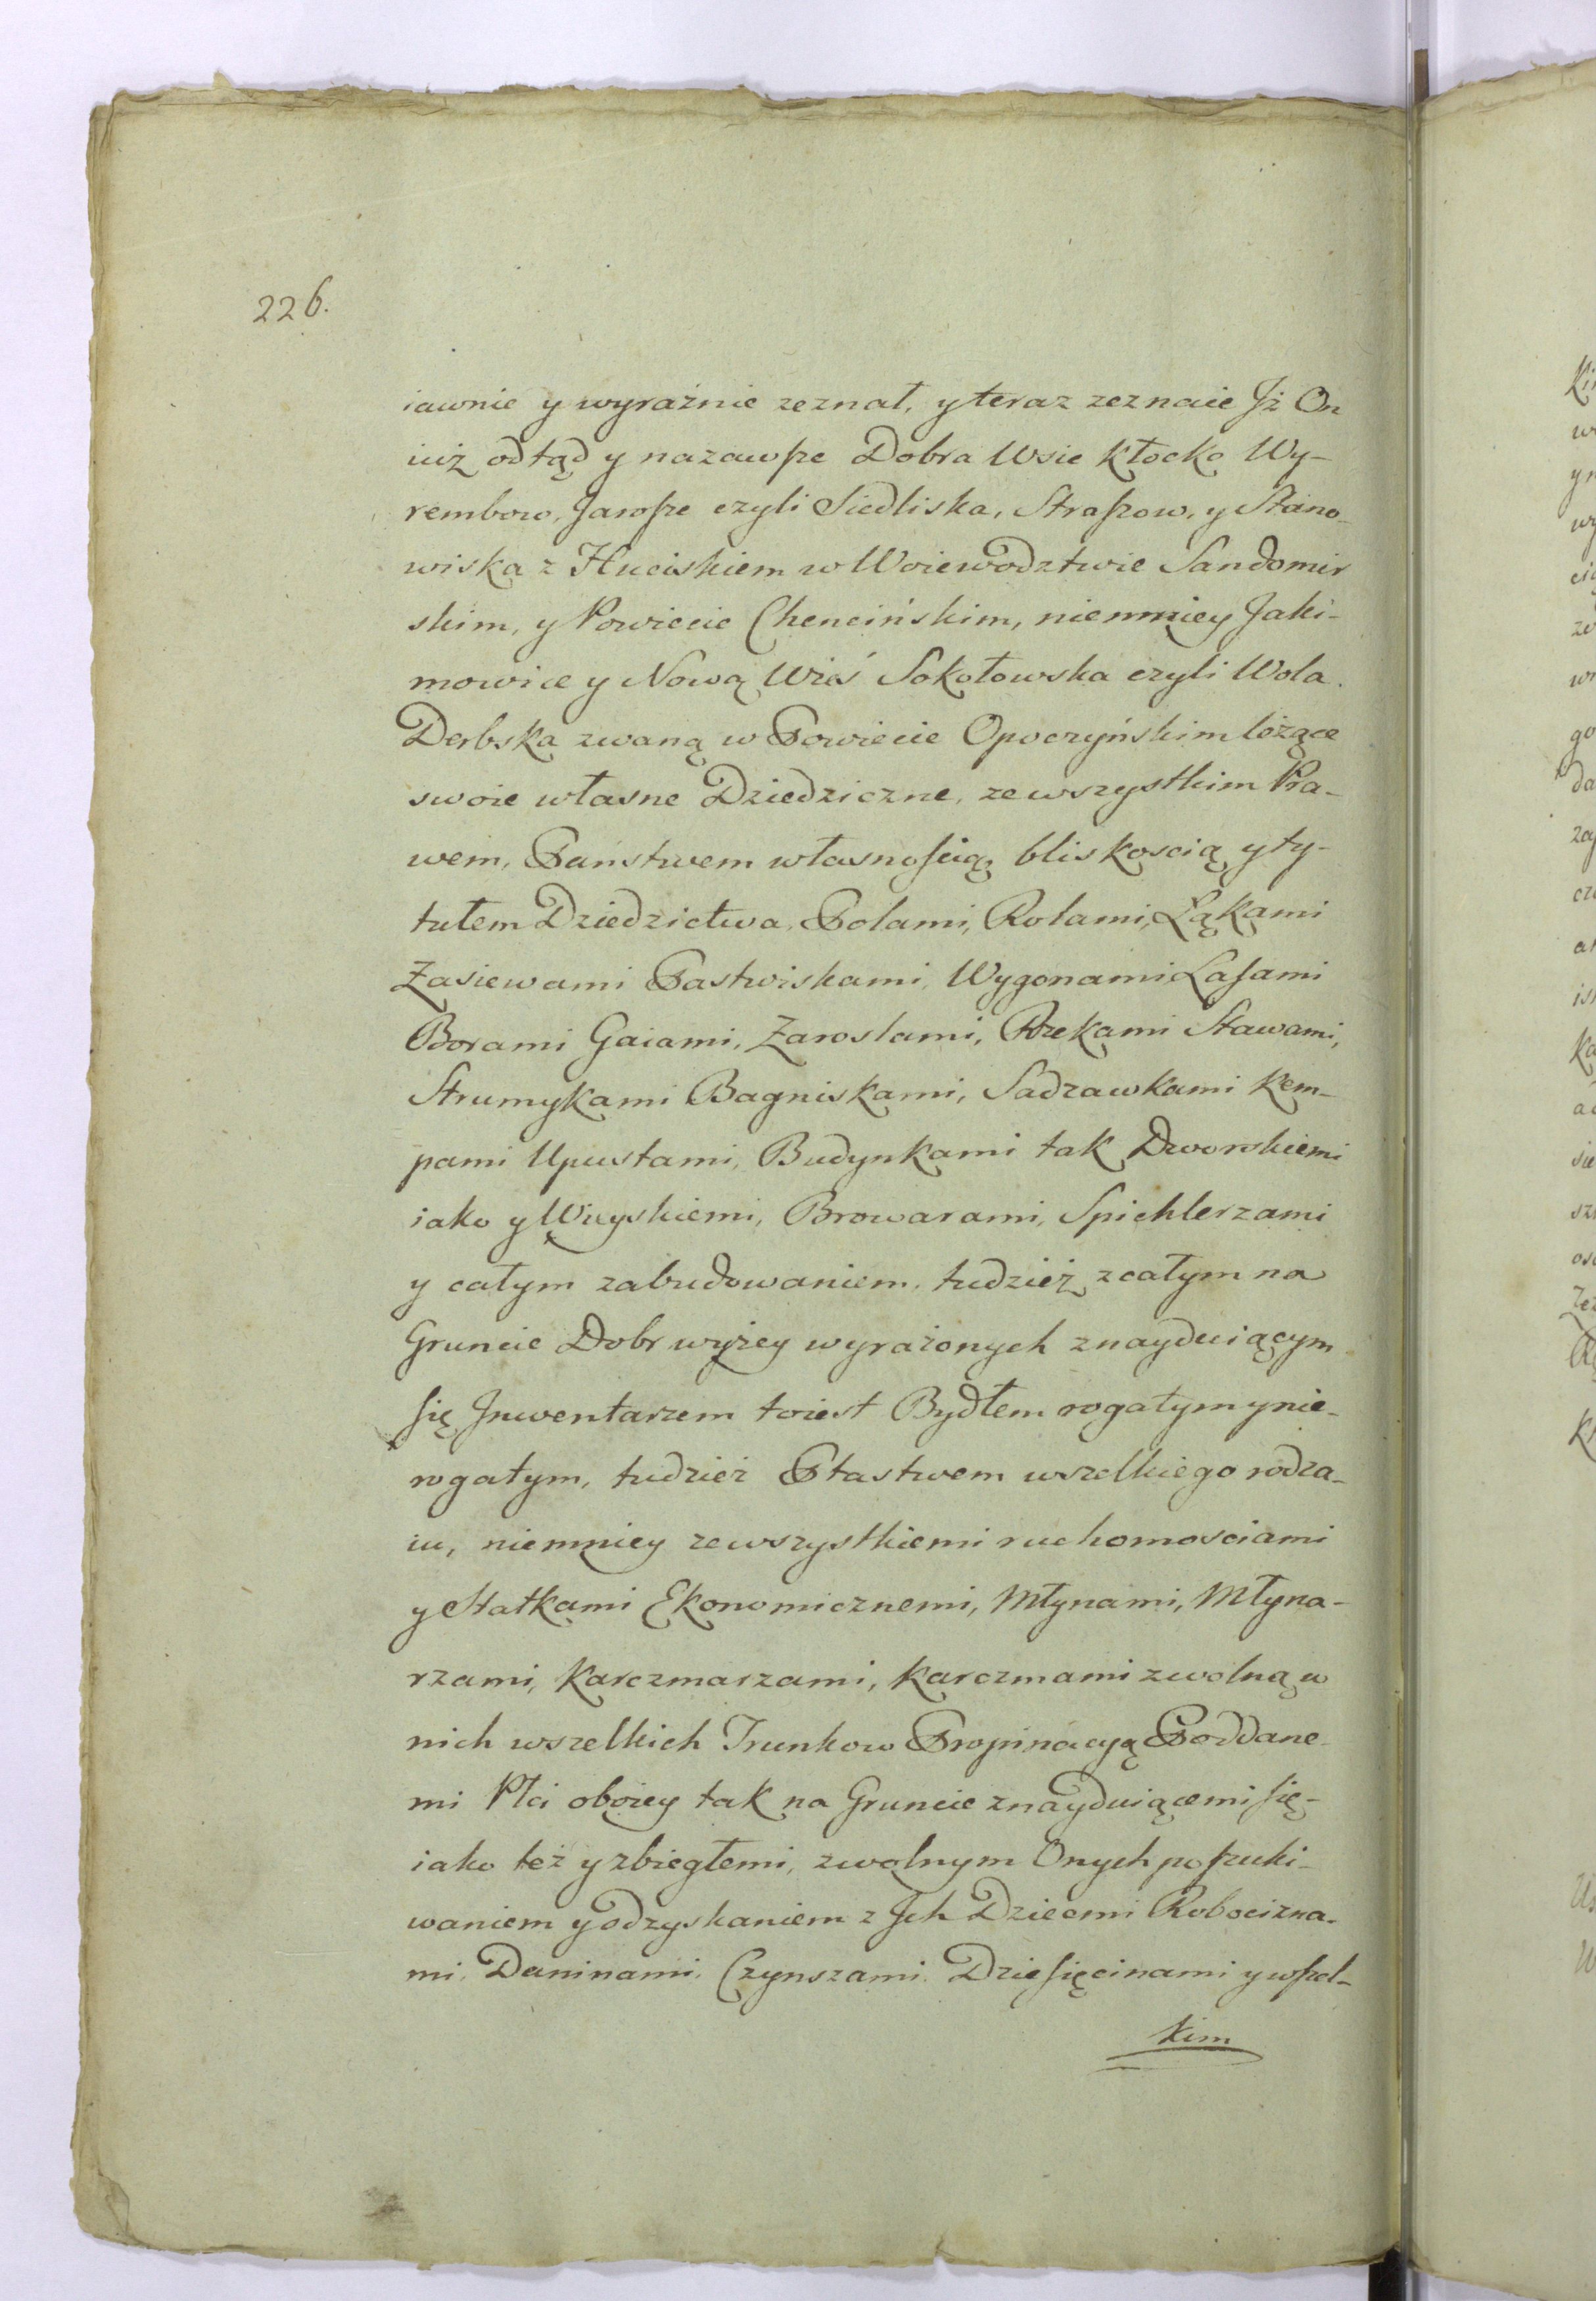 226.
iawnie y wyraźnie zeznał, y teraz zeznaie Jż On
iuż odtąd y nazawsze Dobra Wsie Kłocko Wy-
rembow, Jarosze czyli Siedliska, Straszow, y Stano-
wiska z Huciskiem w Woiewodztwie Sandomir
skim, y Powiecie Chencińskim, niemniey Jaki-
mowice y Nową Wieś Sokołowska czyli Wola
Derbską zwaną w Powiecie Opoczyńskim liżące
swoie własne Dziedziczne, ze wszystkim Pra-
wem, Państwem własnością bliskoscią y ty-
tułem Dziedzictwa, Polami, Rolami, Łąkami
Zasiewami Pastwiskami, Wygonami Lasami
Borami Gaiami, Zaroslami, Rzekami Stawami,
Strumykami Bagniskami, Sadzawkami Kem-
pami Upustami, Budynkami tak Dworskiemi
iako y Wieyskiemi, Browarami, Spichlerzami
y całym zabudowaniem, tudzież z całym na
Gruncie Dobr wyżey wyrażonych znayduiącym
się Jnwentarzem toiest Bydłem rogatym y nie-
rogatym, tudzież Ptastwem wszelkiego rodza-
iu, niemniey ze wszystkiemi ruchomosciami
y Statkami Ekonomicznemi, Młynami, Młyna-
rzami, Karczmarzami, Karczmami z wolną w
nich wszelkich Trunkow Propinacyą Poddane-
mi Płci oboiey tak na Gruncie znayduiącemi się-
iako też y zbiegłemi, z wolnym Onych poszuki-
waniem y odzyskaniem z Jch Dziecmi Robocizna-
mi, Daninami, Czynszami, Dziesięcinami y wszel-
kim